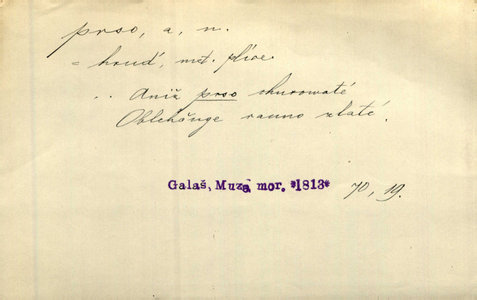 prso, a, n.
= hruď, met. plíce.
.. Aniž prso churowaté
Oblehčuge rauno zlaté.
Galaš, Muza mor. *1813* 70, 19.